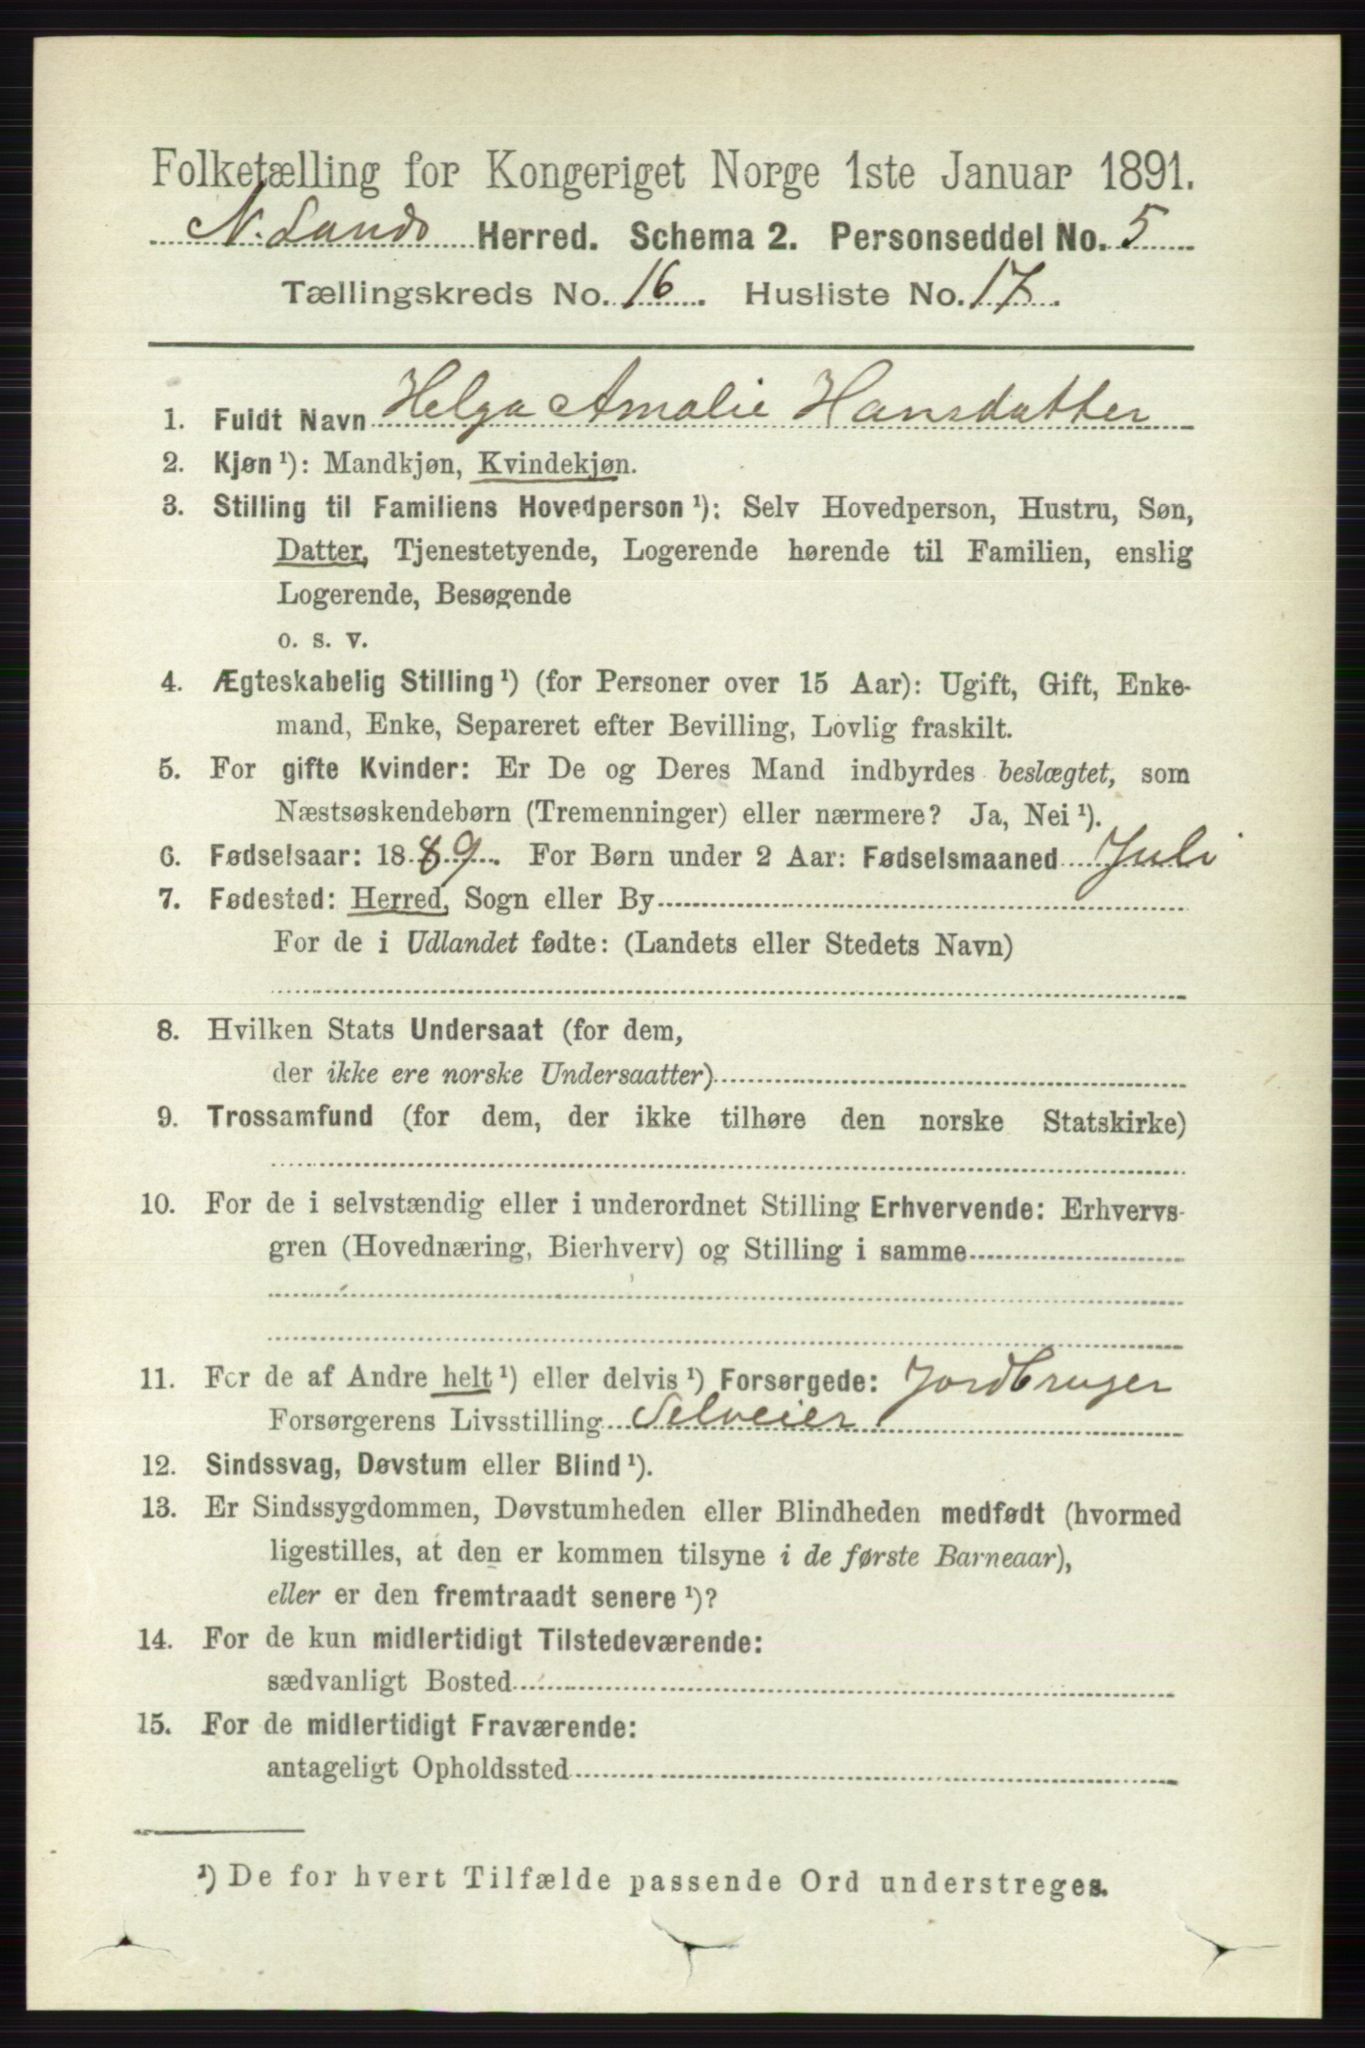 Folketælling for Kongeriget Norge 1ste Januar 1891.
N. Lands Herred. Schema 2. Personseddel No. 5
Tællingskreds No. 16. Husliste No. 17.
1. Fuldt Navn Helga Amalie Hansdatter
2. Kjøn ¹): Mandkjøn, Kvindekjøn.
3. Stilling til Familiens Hovedperson ¹): Selv Hovedperson, Hustru, Søn,
Datter, Tjenestetyende, Logerende hørende til Familien, enslig
Logerende, Besøgende
o. s. v.
4. Ægteskabelig Stilling ¹) (for Personer over 15 Aar): Ugift, Gift, Enke-
mand, Enke, Separeret efter Bevilling, Lovlig fraskilt.
5. For gifte Kvinder: Er De og Deres Mand indbyrdes beslægtet, som
Næstsøskendebørn (Tremenninger) eller nærmere? Ja, Nei ¹).
6. Fødselsaar: 1889. For Børn under 2 Aar: Fødselsmaaned Juli
7. Fødested: Herred, Sogn eller By
For de i Udlandet fødte: (Landets eller Stedets Navn)
8. Hvilken Stats Undersaat (for dem,
der ikke ere norske Undersaatter)
9. Trossamfund (for dem, der ikke tilhøre den norske Statskirke)
10. For de i selvstændig eller i underordnet Stilling Erhvervende: Erhvervs-
gren (Hovednæring, Bierhverv) og Stilling i samme
11. For de af Andre helt ¹) eller delvis ¹) Forsørgede: Jordbruger
Forsørgerens Livsstilling Selveier
12. Sindssvag, Døvstum eller Blind ¹).
13. Er Sindssygdommen, Døvstumheden eller Blindheden medfødt (hvormed
ligestilles, at den er kommen tilsyne i de første Barneaar),
eller er den fremtraadt senere ¹)?
14. For de kun midlertidigt Tilstedeværende:
sædvanligt Bosted
15. For de midlertidigt Fraværende:
antageligt Opholdssted
¹) De for hvert Tilfælde passende Ord understreges.